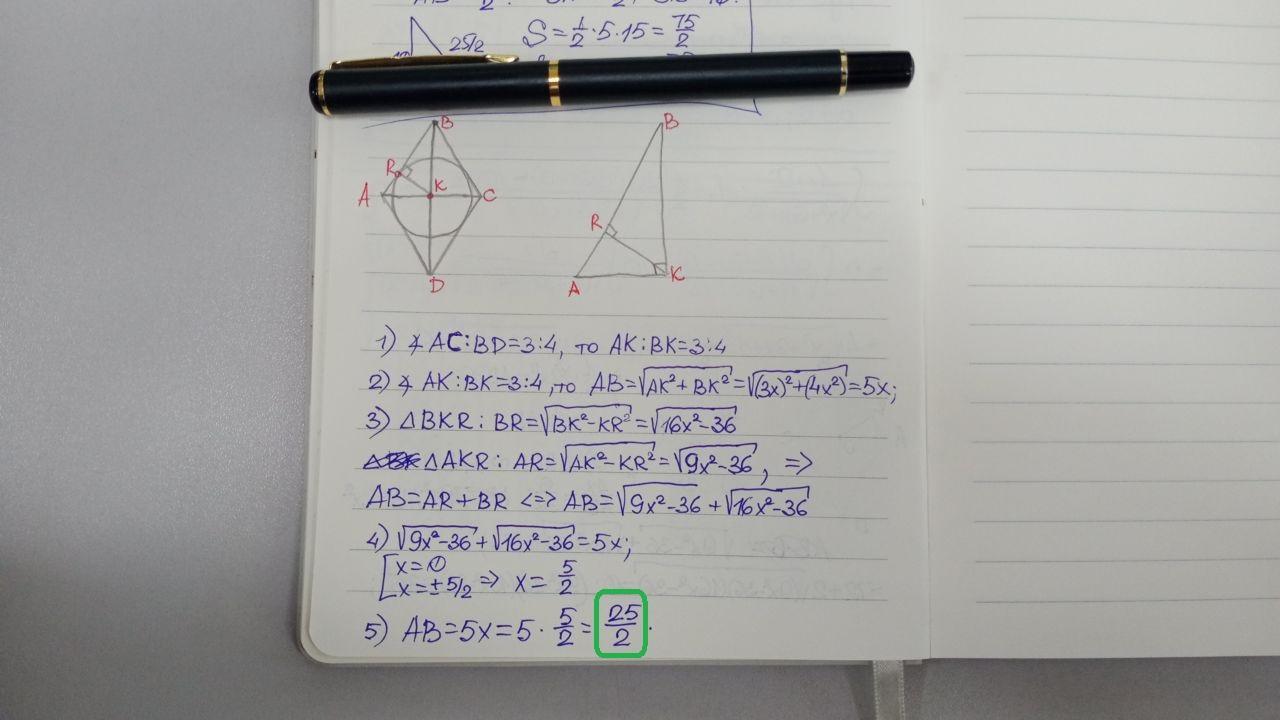 S=1/2·5·15=75/2
25/2
B
R
K
A
C
D
B
R
A
K
1) ∡ AC:BD=3:4, то AK:BK=3:4
2) ∡ AK:BK=3:4, то AB=√(AK²+BK²)=√((3x)²+(4x²))=5x;
3) △BKR: BR=√(BK²-KR²)=√(16x²-36)
△AKR: AR=√(AK²-KR²)=√(9x²-36), =>
AB=AR+BR <=> AB=√(9x²-36)+√(16x²-36)
4) √(9x²-36)+√(16x²-36)=5x;
[x=0
x=±5/2 => x=5/2
5) AB=5x=5·5/2=25/2.